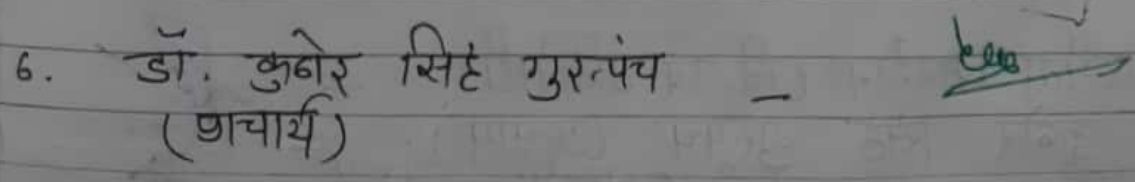 6. डॉ. कुबेर सिंह गुरुपंच -
(प्राचार्य)